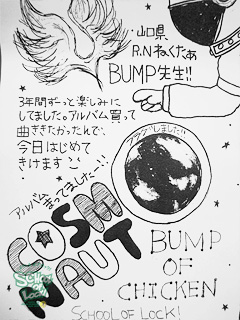 山口県
R.N ねくたぁ
BUMP先生!!
3年間ずーっと楽しみに
してました。アルバム買って
曲ききたかったんで、
今日はじめて
きけます
アルバムまってましたー!!
COSMONAUT
BUMP
OF
CHICKEN
SCHOOL OF LOCK!